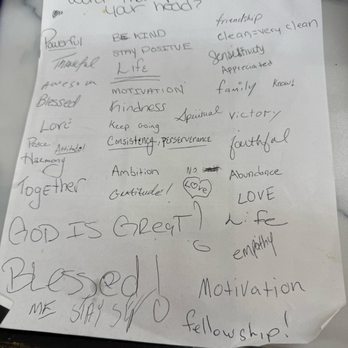 your head?
Powerful
Thankful
Awesome
Blessed
Love
Peace Attitude!
Harmony
Together
BE KIND
STAY POSITIVE
Life
MOTIVATION
Kindness
Keep Going
Consistency, perseverance
Ambition
Gratitude!
NO
Love
Spiritual
friendship
clean=very clean
Sensitivity
Appreciated
family
Victory
faithful
Abundance
LOVE
Life
empathy
Motivation
fellowship!
GOD IS GREAT!
Blessed!
ME STAY